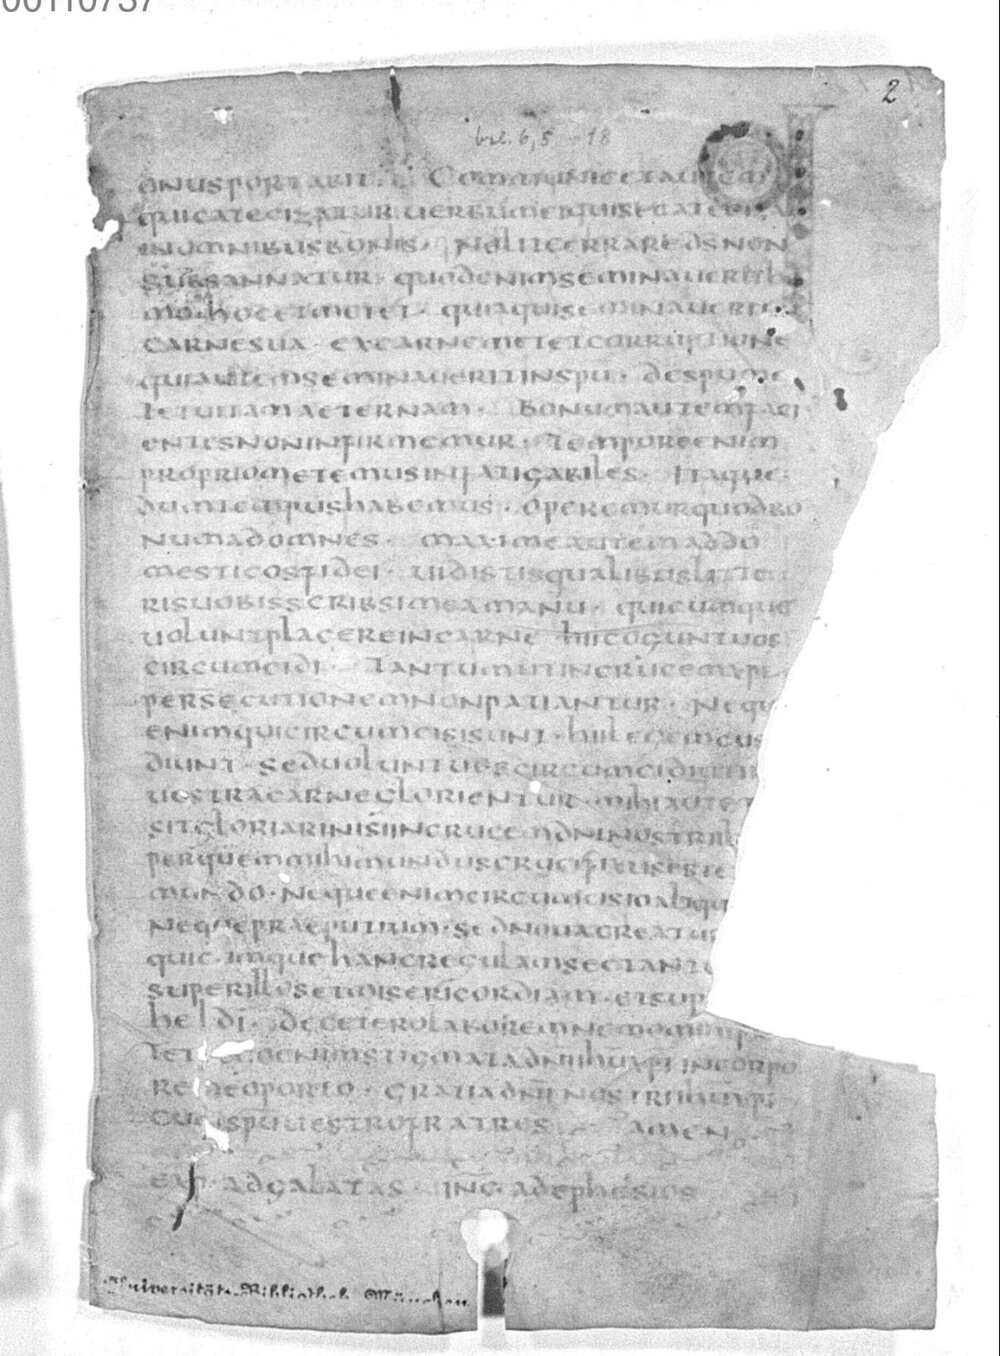 00110737
2
gal. 6,5 - 18
ONUSPORTABIT. COMMUNICETAUTEM
QUICATECIZATUR UERBUM EIQUISECATECIZA
INOMNIBUSBONIS. NOLITEERRARE DSNON
SUBSANNATUR. QUODENIMSEMINAUERITh
MO.HOCETMETET. QUIAQUISEMINAUERIT
CARNESUA. EXCARNEMETETCORRUPTIONE
QUIAUTEMSEMINAUERITINSPU. DESPUME
TETUITAMAETERNAM. BONUMAUTEMFACI
ENTESNONINFIRMEMUR. TEMPOREENIM
PROPRIOMETEMUSINFATIGABILES. ITAQUE
DUMTEMPUSHABEMUS. OPEREMURQUODBO
NUMADOMNES. MAXIMEAUTEMADDO
MESTICOSFIDEI. UIDISTISQUALIBUSLITTE
RISUOBISSCRIBSIMEAMANU. QUICUMQUE
UOLUNTPLACEREINCARNE HIICOGUNTUOS
CIRCUMCIDI. TANTUMUTINCRUCEMXPI
PERSECUTIONEMNONPATIANTUR. NEQU
ENIMQUICIRCUMCISISUNT. HIILEGEMCUS
DIUNT. SEDUOLUNTUOSCIRCUMCIDI
UOSTRACARNEGLORIENTUR. MIHIAUTE
SITGLORIARINISIINCRUCEMDNINOSTRIIh
PERQUEMMIHIMUNDUSCRUCIFIXUSESTE
MUNDO. NEQUEENIMCIRCUMCISIOALIQU
NEQUEPRAEPUTIUM. SEDNOUACREATUR
QUICUMQUEHANCREGULAMSECTANT
SUPERILLOSETMISERICORDIAM. ETSUP
HELDI. DECETEROLABOREMNEMOMIHIP
TET EGOENIMSTIGMATADNIIHUXPIINCORPO
REMEOPORTO. GRATIADNINOSTRIIHUXPI
CUMSPUUESTROFRATRES AMEN
EXP. ADGALATAS. INC. ADEPHESIOS
Universitäts-Bibliothek München